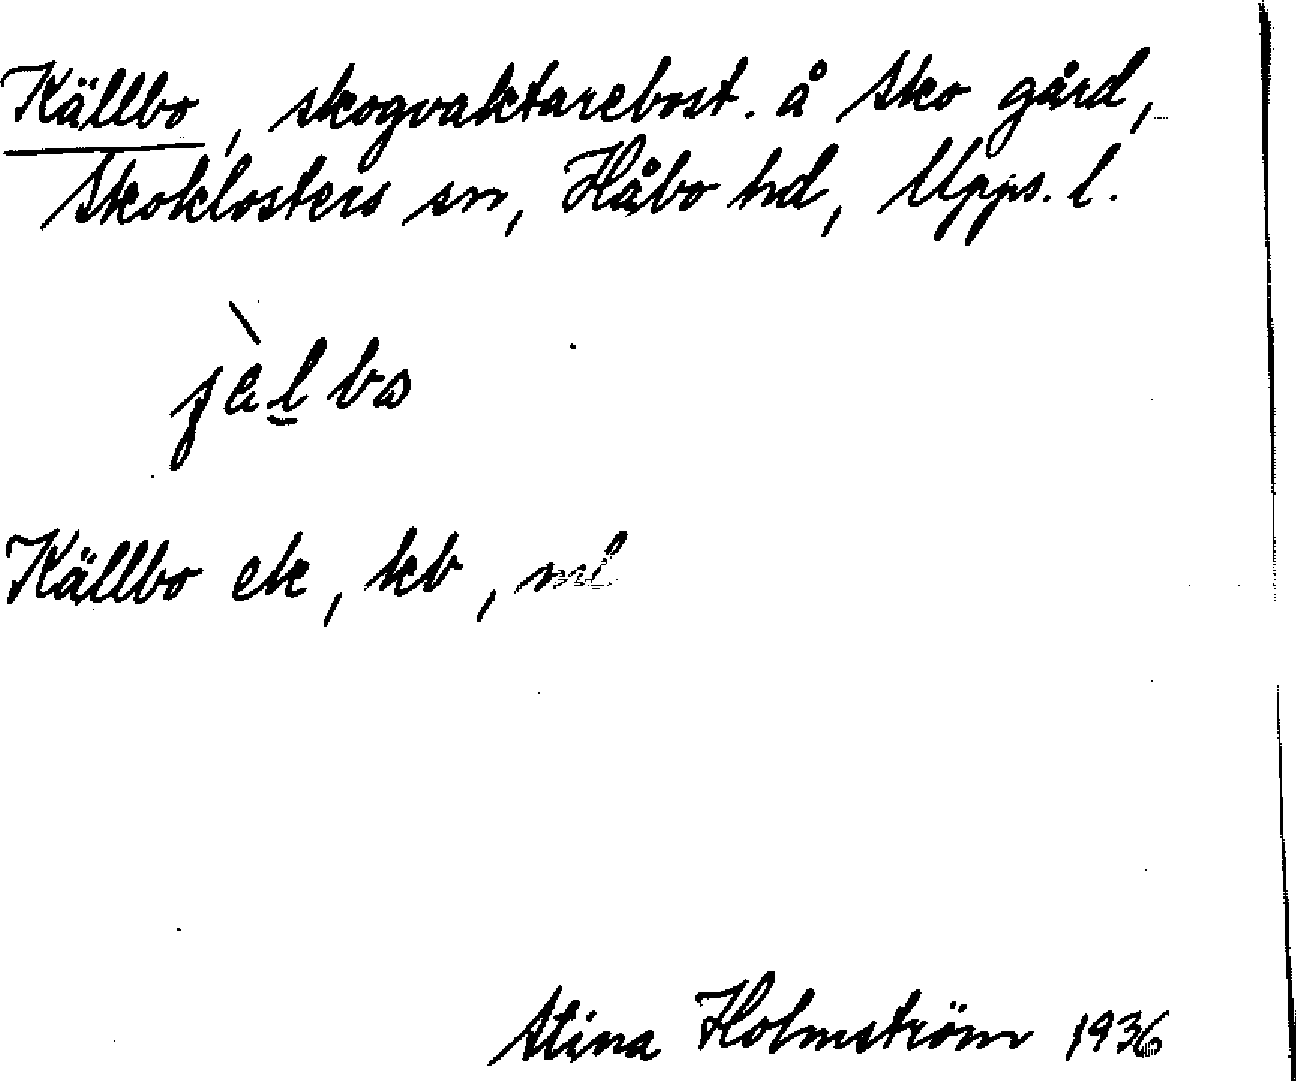 Källbo, skogvaktarebost. å Sko gård,
Skoklosters sn, Håbo hd, Upps. l.
Källbo ek, kb, ml
Stina Holmström 1936